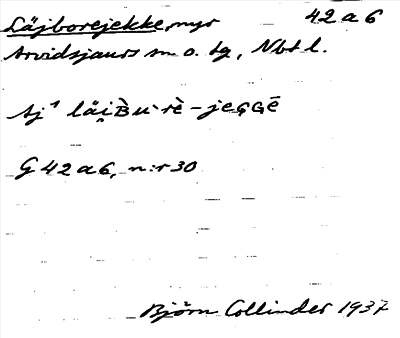 Läjborejekke, myr 42 a 6
Arvidsjaurs sn o. tg, Nbt l.
Aj¹ läi̯Bu·rè-jeGGē
G 42 a 6, n:r 30
Björn Collinder 1937